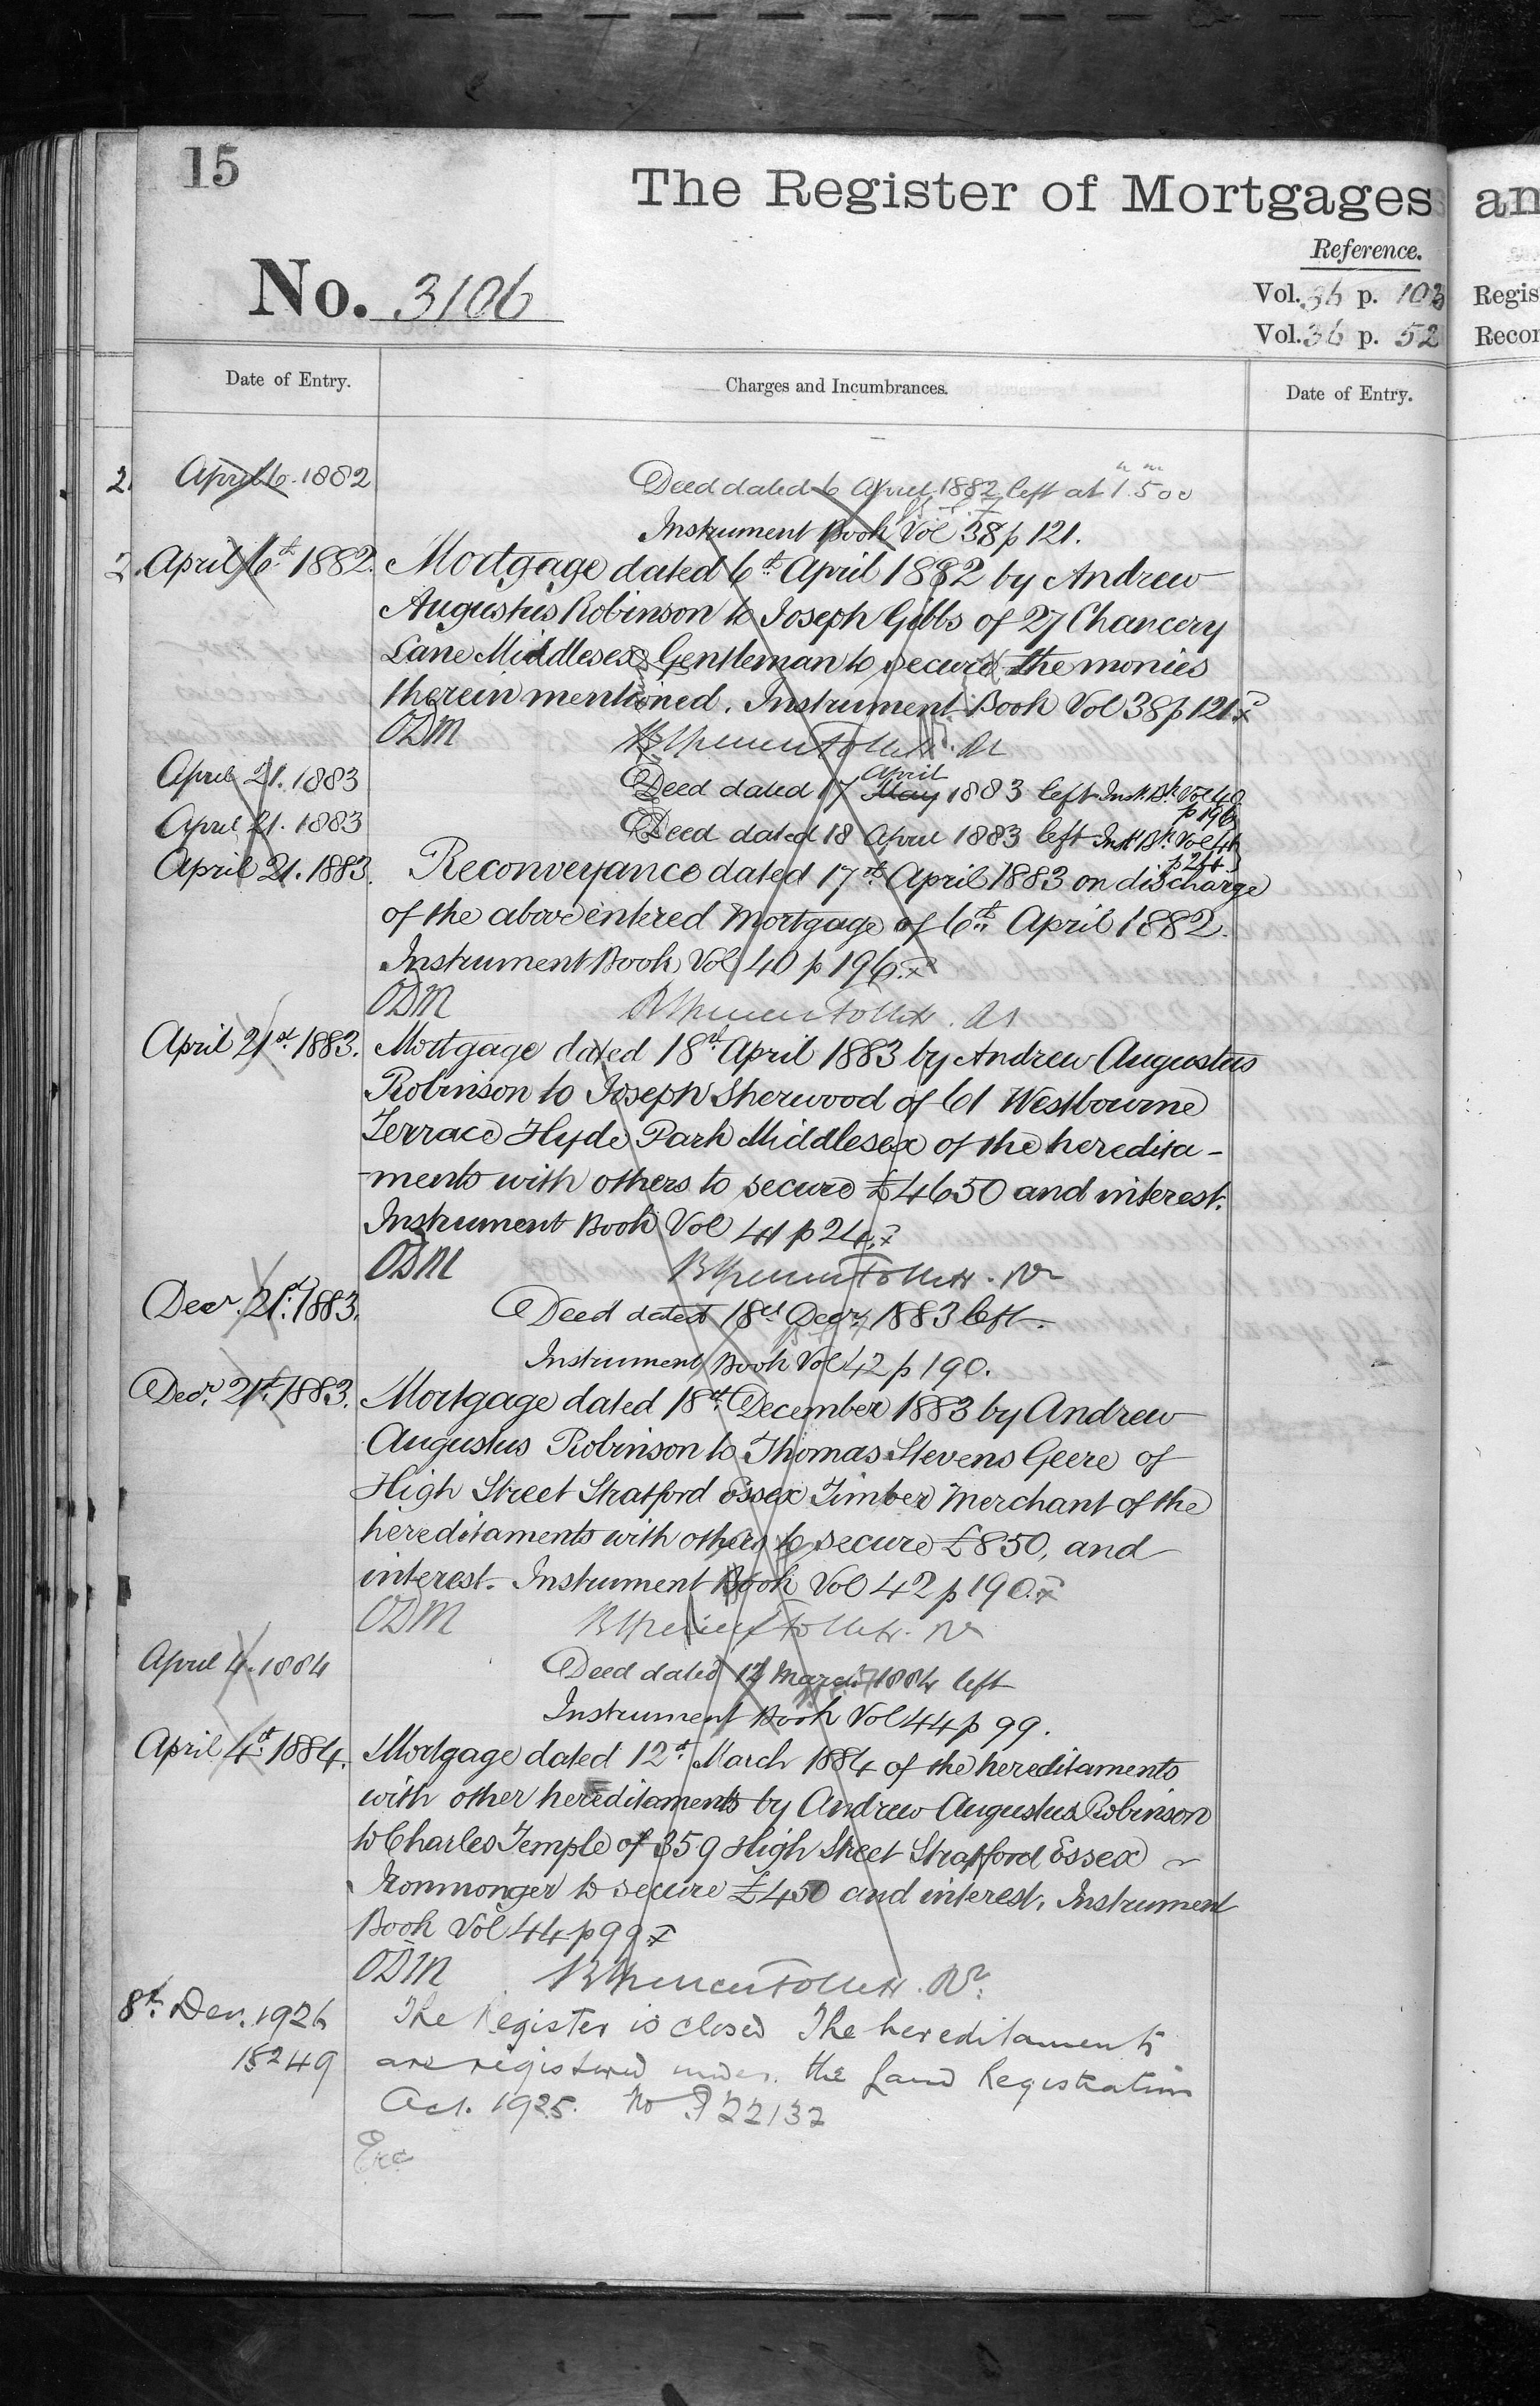 15
The Register of Mortgages an
Reference.
No. 3106
Vol. 36 p. 103 Regis
Vol. 36 p. 52 Recor
Date of Entry. Charges and Incumbrances. Date of Entry.
2. April 6. 1882 Deed dated 6 April 1882 left at
Instrument Book Vol 38 p 121.
2. April 6th 1882. Mortgage dated 6th April 1882 by Andrew
Augustus Robinson to Joseph Gibbs of 27 Chancery
Lane Middlesex Gentleman to secure the monies
therein mentioned. Instrument Book Vol 38 p 121
ODM
April 21. 1883 Deed dated 17 April May 1883 left Inst. Bk. Vol 40
p 196
April 21. 1883 Deed dated 18 April 1883 left Inst Bk. Vol 41
p 24
April 21. 1883. Reconveyance dated 17th April 1883 on discharge
of the above entered Mortgage of 6th April 1882.
Instrument Book Vol 40 p 196.
ODM
April 21st 1883. Mortgage dated 18th April 1883 by Andrew Augustus
Robinson to Joseph Sherwood of 61 Westbourne
Terrace Hyde Park Middlesex of the heredita-
-ments with others to secure £4650 and interest.
Instrument Book Vol 41 p 24.
ODM
Decr. 21st 1883. Deed dated 18th Decr 1883 left.
Instrument Book Vol 42 p 190.
Decr. 21st 1883. Mortgage dated 18th December 1883 by Andrew
Augustus Robinson to Thomas Stevens Geere of
High Street Stratford Essex Timber Merchant of the
hereditaments with others to secure £850, and
interest. Instrument Book Vol 42 p 190.
ODM
April 4. 1884 Deed dated 12 March 1884 left
Instrument Book Vol 44 p 99.
April 4th 1884. Mortgage dated 12th March 1884 of the hereditaments
with other hereditaments by Andrew Augustus Robinson
to Charles Temple of 359 High Street Stratford Essex
Ironmonger to secure £450 and interest. Instrument
Book Vol 44 p 99
ODM
8th Dec. 1926 The Register is closed The hereditaments
15249 are registered under the Land Registration
Act. 1925. No P22132